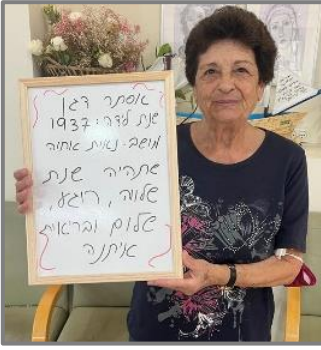 אסתר דגן
שנת לדה: 1937
מושב- נאות אחוה
שתהיה שנת
שלווה, רוגע,
שלום ובריאות
איתנה